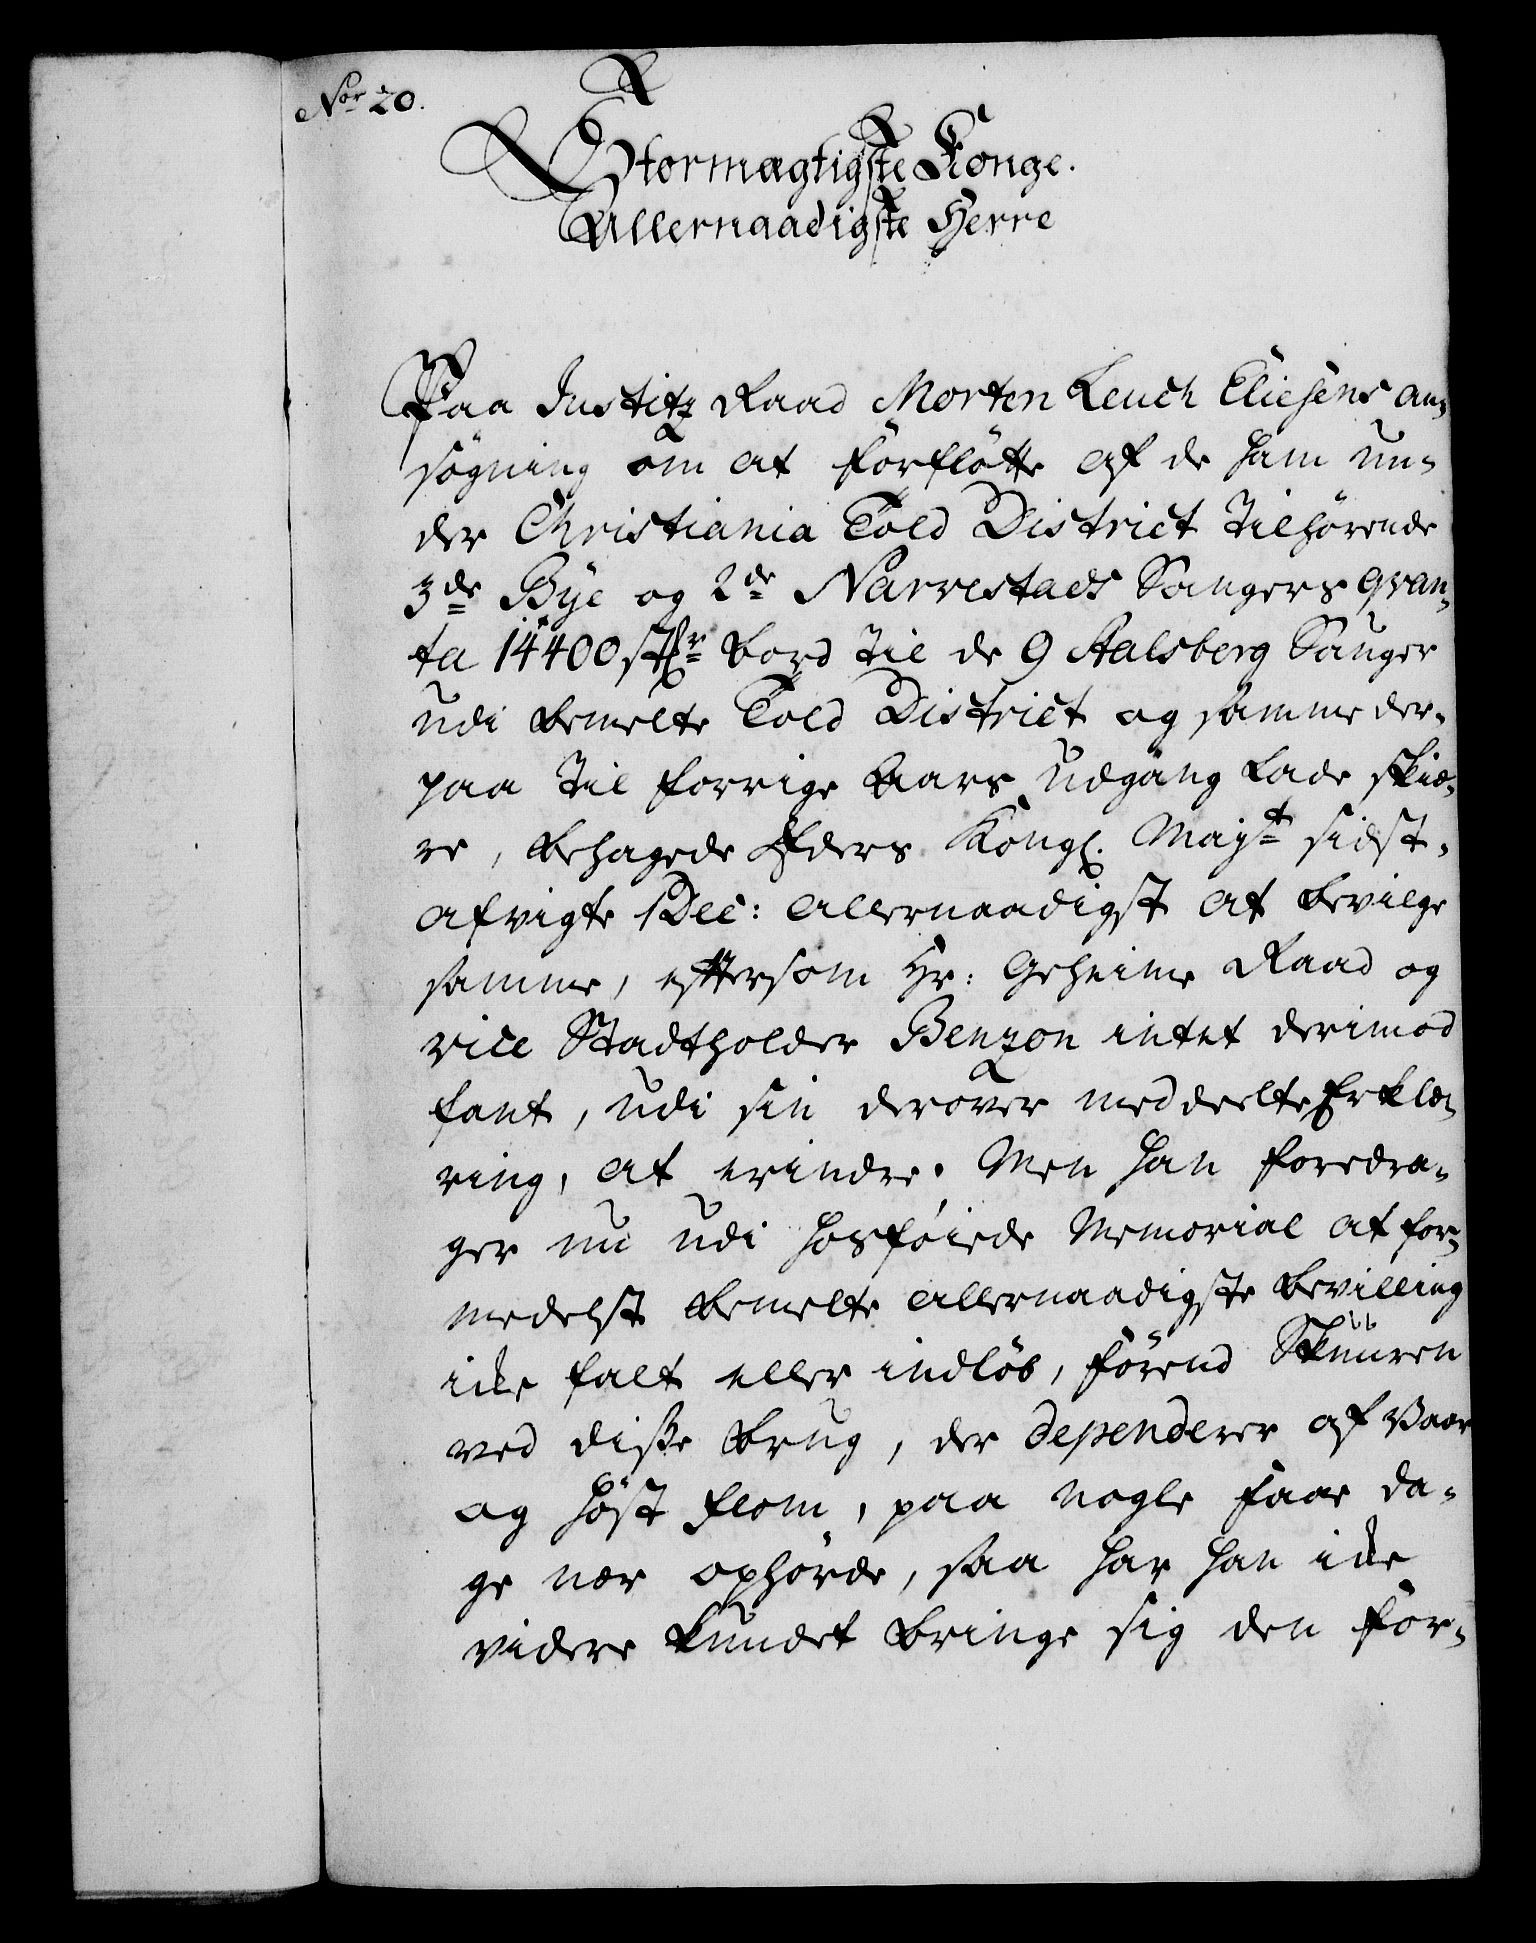 Nor 20.
Stormægtigste Konge.
Allernaadigste Herre
Paa Justitz Raad Morten Leuch Eliesens an-
søgning om at forfløtte af de ham un-
der Christiania Told District Tilhørende
3de Bye og 2de Narrestads Sauger qvan-
ta 14400 stkr bord til de 9 Aalsberg Sauger
udi bemelte Told District og samme der-
paa til forrige Aars udgang lade skiæ-
re, behagede Eders Kongl. Mayt sidst-
afvigte Dec: allernaadigst at bevilge
samme, eftersom Hr: Geheime Raad og
vice Stadtholder Benzon intet derimod
fant, udi sin derover meddeelte Erklæ-
ring, at erindre. Men han foredra-
ger nu udi hosføiede Memorial at for-
medelst bemelte allernaadigste bevilling
icke falt eller indløb, førend Skuuren
ved disse brug, der dependerer af Vaar
og høst flom, paa nogle faae da-
ge nær ophørde, saa har han icke
videre kundet bringe sig den for-